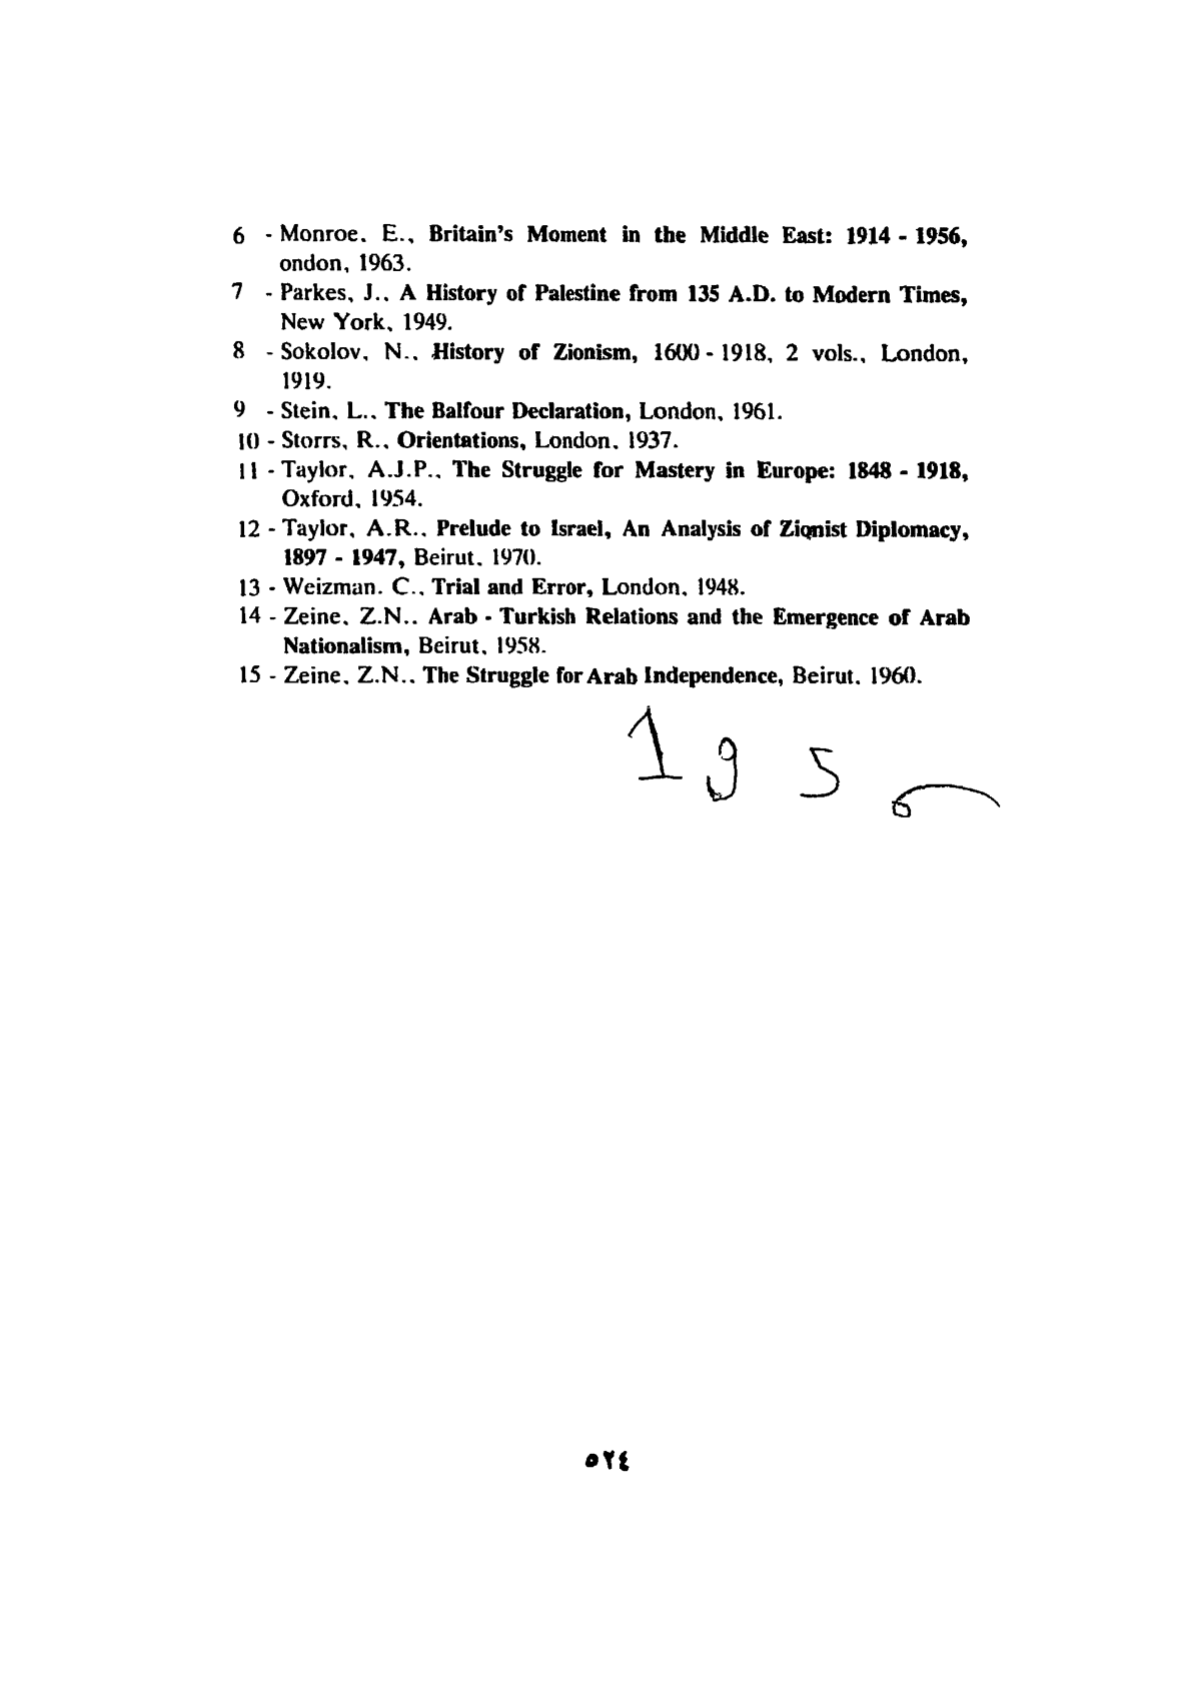 6 - Monroe, E., Britain's Moment in the Middle East: 1914 - 1956,
ondon, 1963.
7 - Parkes, J., A History of Palestine from 135 A.D. to Modern Times,
New York, 1949.
8 - Sokolov, N., History of Zionism, 1600 - 1918, 2 vols., London,
1919.
9 - Stein, L., The Balfour Declaration, London, 1961.
10 - Storrs, R., Orientations, London, 1937.
11 - Taylor, A.J.P., The Struggle for Mastery in Europe: 1848 - 1918,
Oxford, 1954.
12 - Taylor, A.R., Prelude to Israel, An Analysis of Zionist Diplomacy,
1897 - 1947, Beirut, 1970.
13 - Weizman, C., Trial and Error, London, 1948.
14 - Zeine, Z.N., Arab - Turkish Relations and the Emergence of Arab
Nationalism, Beirut, 1958.
15 - Zeine, Z.N., The Struggle for Arab Independence, Beirut, 1960.
1 9 5
٥٢٤